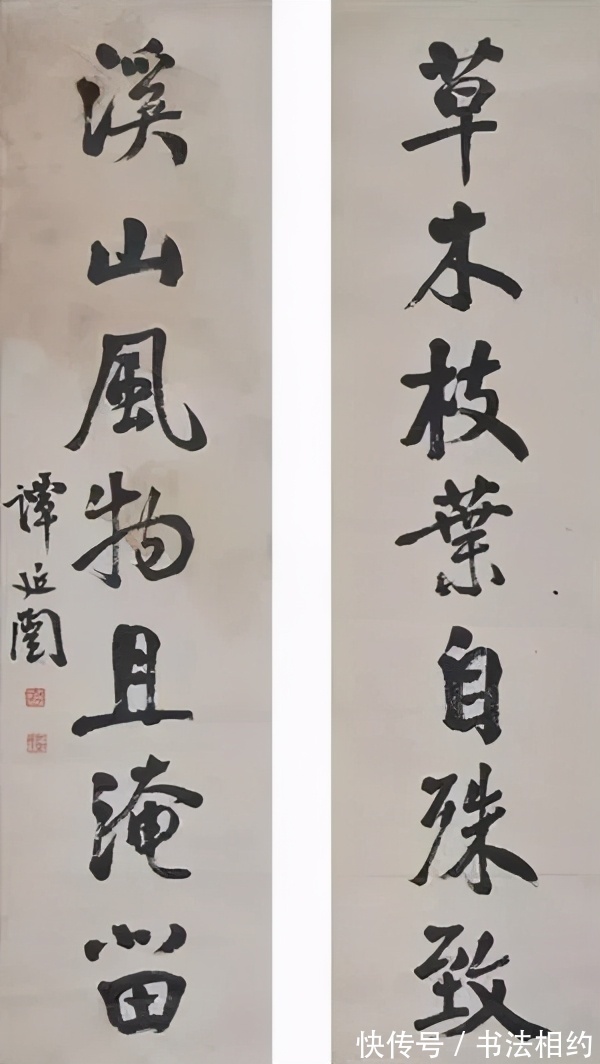 草木枝葉自殊致
溪山風物且淹留
譚延闓
快传号 / 书法相约